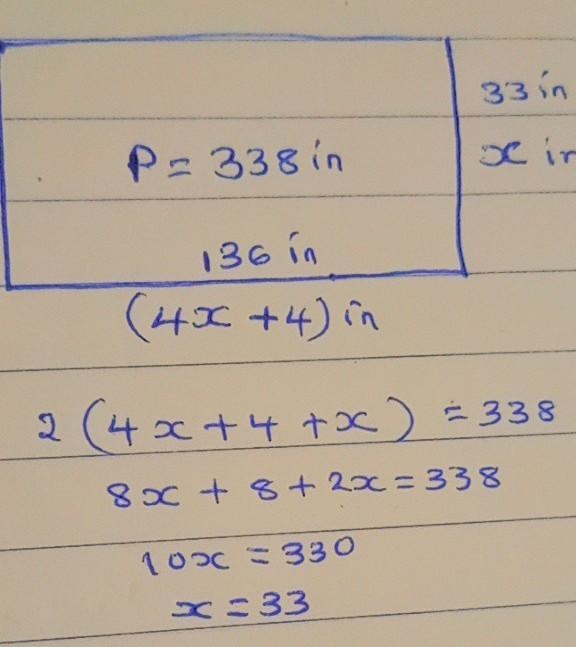 33 in
P = 338 in
x in
136 in
(4x + 4) in
2 (4x + 4 + x) = 338
8x + 8 + 2x = 338
10x = 330
x = 33